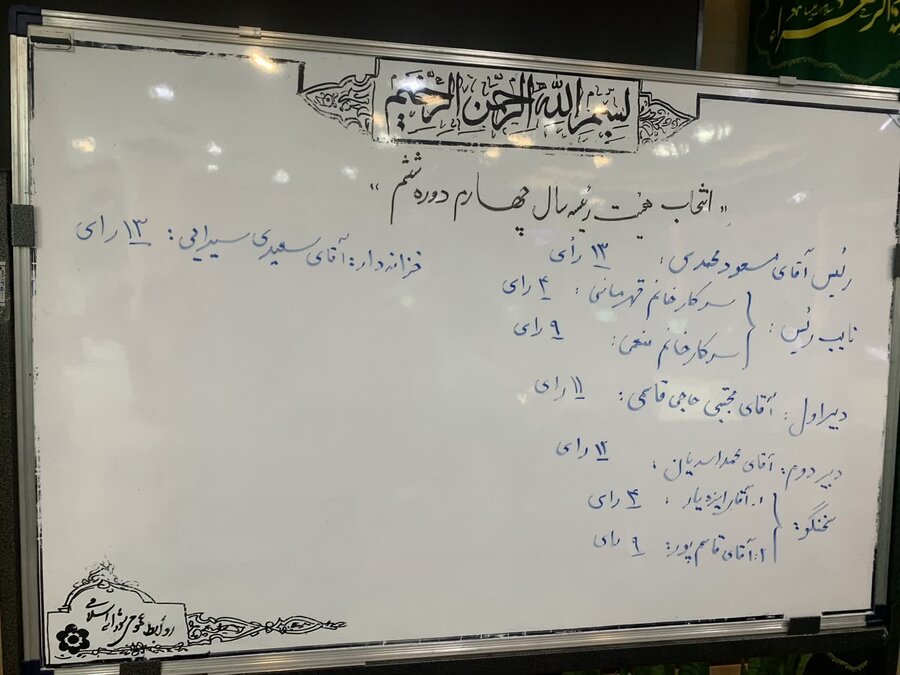 بسم الله الرحمن الرحیم
"انتخاب هیئت رئیسه سال چهارم دوره ششم"
رئیس آقای مسعود محمدی: ۱۳ رأی
نایب رئیس:
سرکار خانم قهرمانی: ۴ رای
سرکار خانم نعمی: ۹ رای
دبیر اول: آقای مجتبی حاجی قاسمی: ۱۱ رای
دبیر دوم: آقای محمد اسدیان: ۱۲ رای
سخنگو:
۱: آقای ایزدیار: ۴ رای
۱: آقای قاسم پور: ۹ رای
خزانه دار: آقای سعیدی سیرایی: ۱۳ رای
روابط عمومی شورای اسلامی